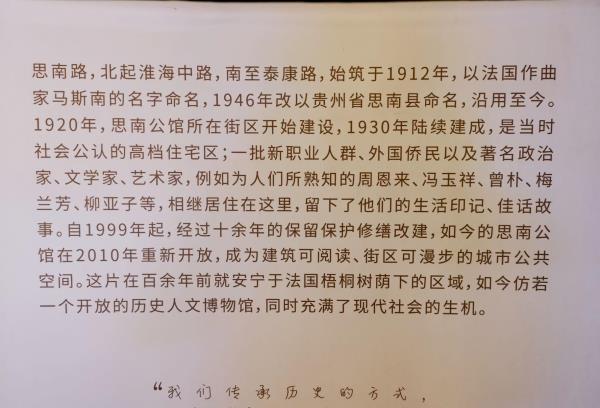 思南路，北起淮海中路，南至泰康路，始筑于1912年，以法国作曲
家马斯南的名字命名，1946年改以贵州省思南县命名，沿用至今。
1920年，思南公馆所在街区开始建设，1930年陆续建成，是当时
社会公认的高档住宅区；一批新职业人群、外国侨民以及著名政治
家、文学家、艺术家，例如为人们所熟知的周恩来、冯玉祥、曾朴、梅
兰芳、柳亚子等，相继居住在这里，留下了他们的生活印记、佳话故
事。自1999年起，经过十余年的保留保护修缮改建，如今的思南公
馆在2010年重新开放，成为建筑可阅读、街区可漫步的城市公共
空间。这片在百余年前就安宁于法国梧桐树荫下的区域，如今仿若
一个开放的历史人文博物馆，同时充满了现代社会的生机。
“我们传承历史的方式，